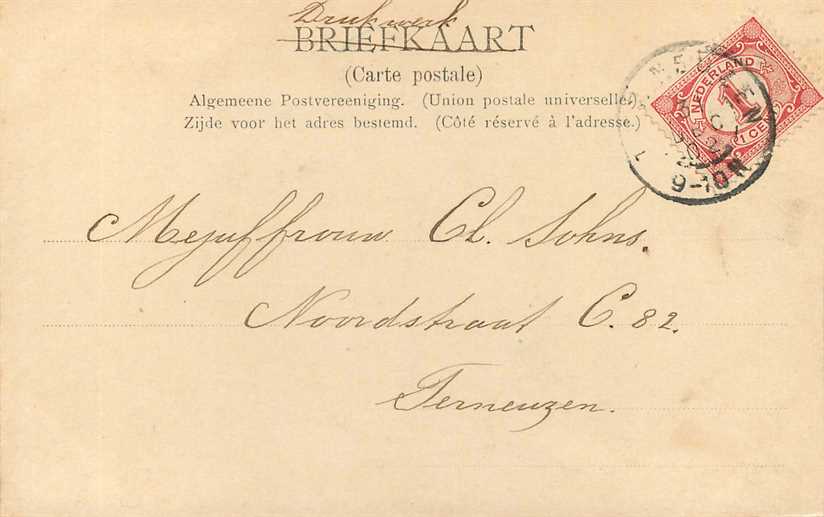 Drukwerk
BRIEFKAART
(Carte postale)
Algemeene Postvereeniging. (Union postale universelle)
Zijde voor het adres bestemd. (Côté réservé à l'adresse.)
NEDERLAND
1
1 CE
9-10N
Mejuffrouw Cl. Sohns.
Noordstraat C. 82.
Terneuzen.